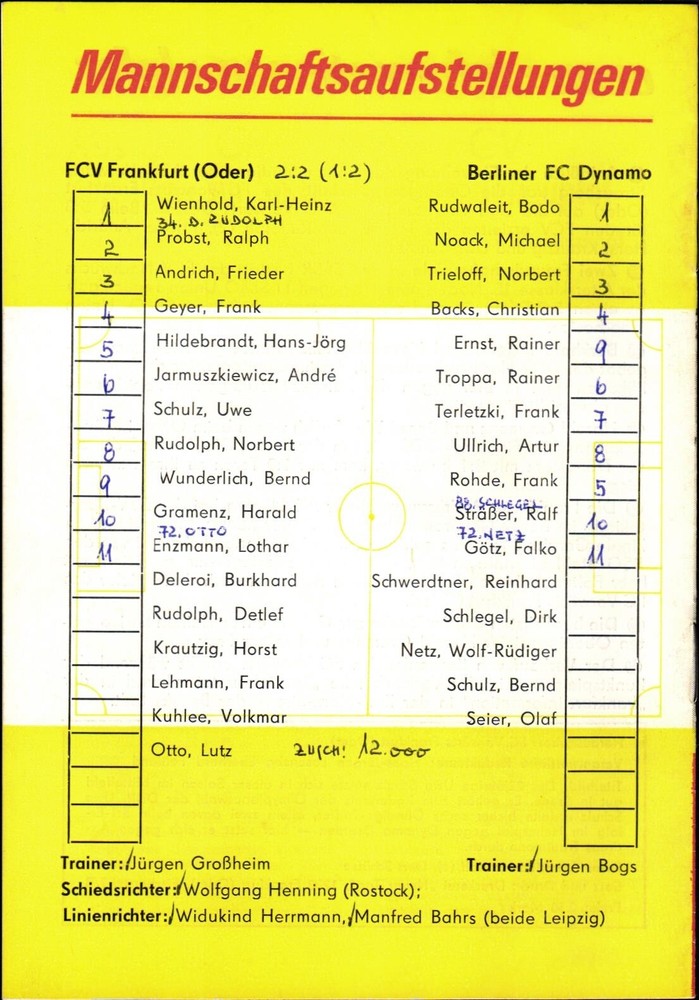 Mannschaftsaufstellungen
FCV Frankfurt (Oder) 2:2 (1:2) Berliner FC Dynamo
1 Wienhold, Karl-Heinz Rudwaleit, Bodo 1
34. D. RUDOLPH
2 Probst, Ralph Noack, Michael 2
3 Andrich, Frieder Trieloff, Norbert 3
4 Geyer, Frank Backs, Christian 4
5 Hildebrandt, Hans-Jörg Ernst, Rainer 9
6 Jarmuszkiewicz, André Troppa, Rainer 6
7 Schulz, Uwe Terletzki, Frank 7
8 Rudolph, Norbert Ullrich, Artur 8
9 Wunderlich, Bernd Rohde, Frank 5
88. SCHLEGEL
10 Gramenz, Harald Sträßer, Ralf 10
72. OTTO 72. NETZ
11 Enzmann, Lothar Götz, Falko 11
Deleroi, Burkhard Schwerdtner, Reinhard
Rudolph, Detlef Schlegel, Dirk
Krautzig, Horst Netz, Wolf-Rüdiger
Lehmann, Frank Schulz, Bernd
Kuhlee, Volkmar Seier, Olaf
Otto, Lutz ZUSCH: 12.000
Trainer:/Jürgen Großheim Trainer:/Jürgen Bogs
Schiedsrichter:/Wolfgang Henning (Rostock);
Linienrichter:/Widukind Herrmann,/Manfred Bahrs (beide Leipzig)